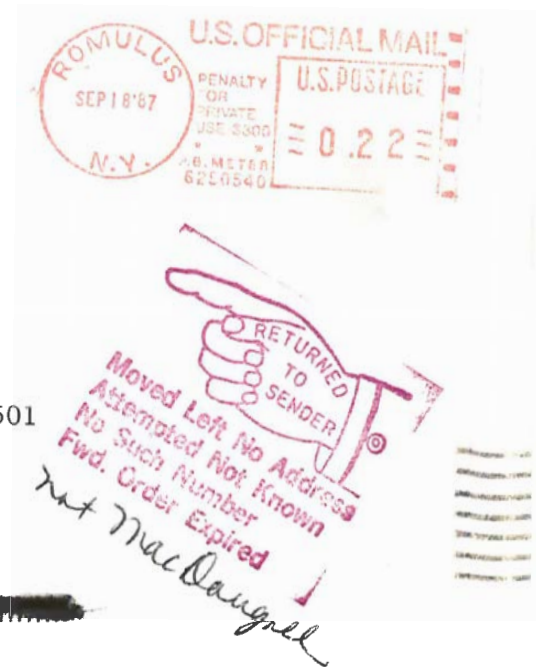 U.S. OFFICIAL MAIL
ROMULUS
SEP 18 '87
N.Y.
PENALTY
FOR
PRIVATE
USE $300
P.B. METER
6250540
U.S. POSTAGE
0.22
RETURNED
TO
SENDER
501
Moved Left No Address
Attempted Not Known
No Such Number
Fwd. Order Expired
not